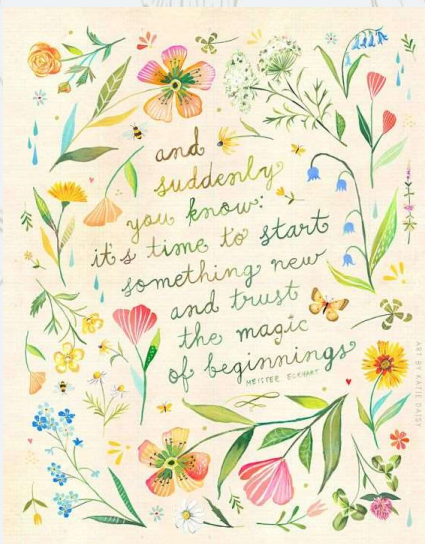 and
suddenly
you know:
it's time to start
something new
and trust
the magic
of beginnings
MEISTER ECKHART
ART BY KATIE DAISY